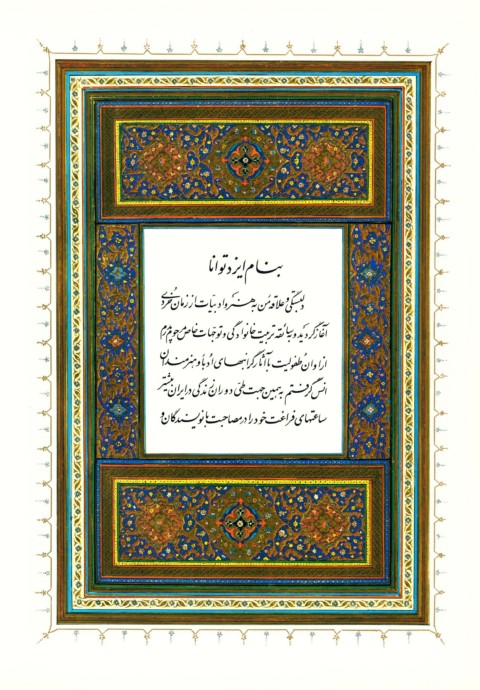 بنام ایزد توانا
دلبستگی و علاقه من به هنر و ادبیات از زمان خردی
آغاز گردید و سابقه تربیت خانوادگی و توجهات خاص مرحوم پدرم
از اوان طفولیت با آثار گرانبهای ادبا و هنرمندان
انس گرفتم به همین جهت طی دوران زندگی در ایران بیشتر
ساعتهای فراغت خود را در مصاحبت با نویسندگان و